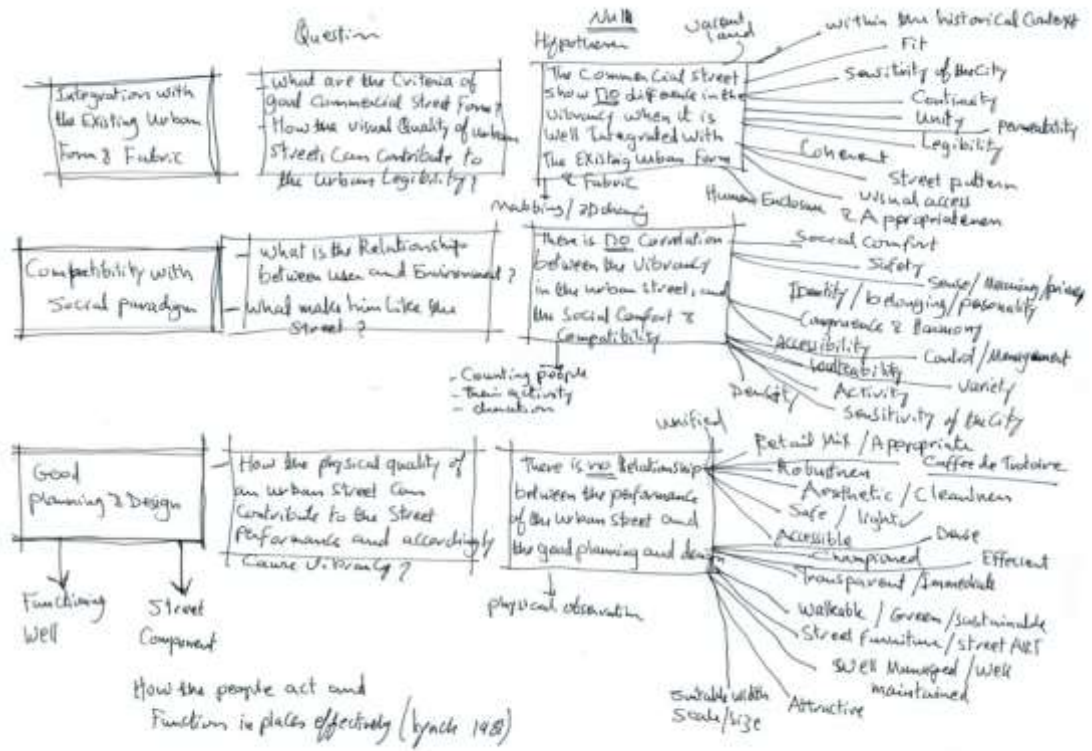 Question
Null
Hypothesis
vacant
land
Integration with
the Existing Urban
Form & Fabric
- What are the Criteria of
good Commercial Street Form?
- How the visual Quality of urban
Streets Can Contribute to
the urban Legibility?
The Commercial street
show NO difference in the
vibrancy when it is
well Integrated with
The Existing Urban Form
& Fabric
within the historical Context
Fit
Sensitivity of the City
Continuity
Unity
permeability
Legibility
Coherent
Street pattern
Visual access
& Appropriateness
Human Enclosure
Compatibility with
Social paradigm
- What is the Relationship
between user and Environment?
- What make him like the
Street?
There is NO Correlation
between the Vibrancy
in the urban street, and
the Social Comfort &
Compatibility
- Counting people
- their activity
- duration
Social Comfort
Safety
Sense / Meaning / privacy
Identity / belonging / personality
Congruence & Harmony
Accessibility
Control / Management
walkability
Variety
Activity
Density
Sensitivity of the City
Good
planning & Design
Functioning
Well
Street
Component
- How the physical quality of
an urban Street Can
Contribute to the Street
Performance and accordingly
Cause Vibrancy?
There is no Relationship
between the performance
of the urban street and
the good planning and design
physical observation
unified
Retail Mix / Appropriate
Robustness
Aesthetic / Cleanness
Safe / light
Accessible
Dense
Championed
Effecient
Transparent / Immediate
Walkable / Green / sustainable
Street Furniture / street ART
Well Managed / Well
maintained
Attractive
Suitable width
Scale / size
How the people act and
Function in places effectively (Lynch 1981)